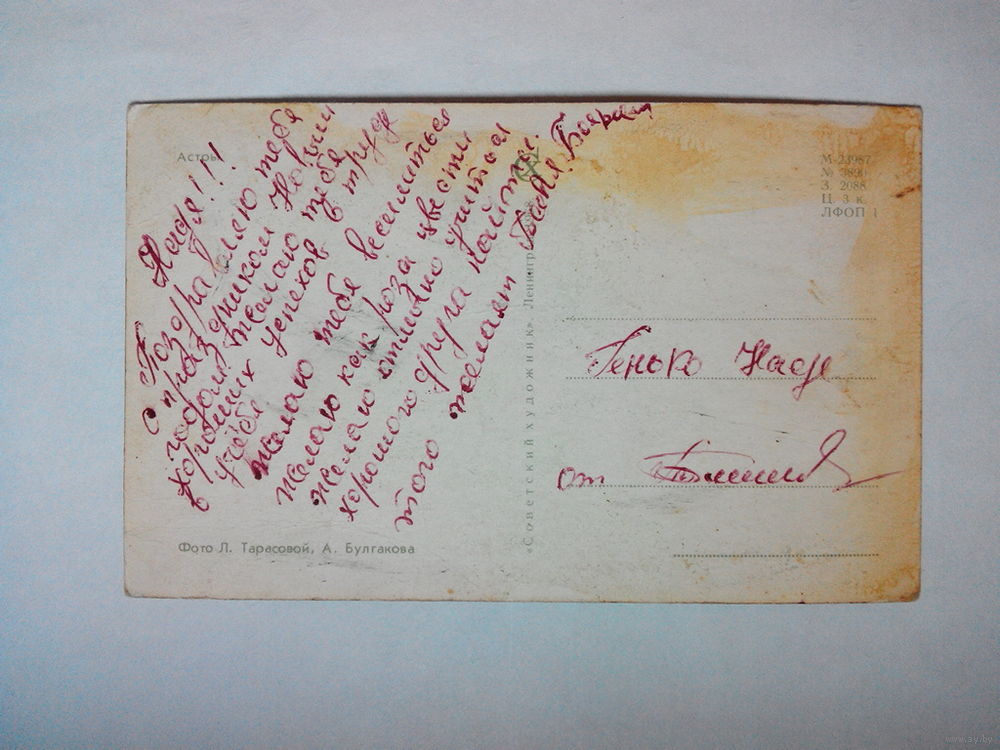 Астры
Надя!!!
Поздравляю тебя
с праздником Новым
годом желаю тебе
хороших успехов в труде
в учёбе
желаю тебе веселиться
желаю как роза цвести
желаю отлично учиться
хорошего друга найти.
того желает Баня
Фото Л. Тарасовой, А. Булгакова
«Советский художник» Ленинград
М-23987
№ 3890
З. 2088
Ц. 3 к.
ЛФОП 1
Генько Наде
от
www.ay.by